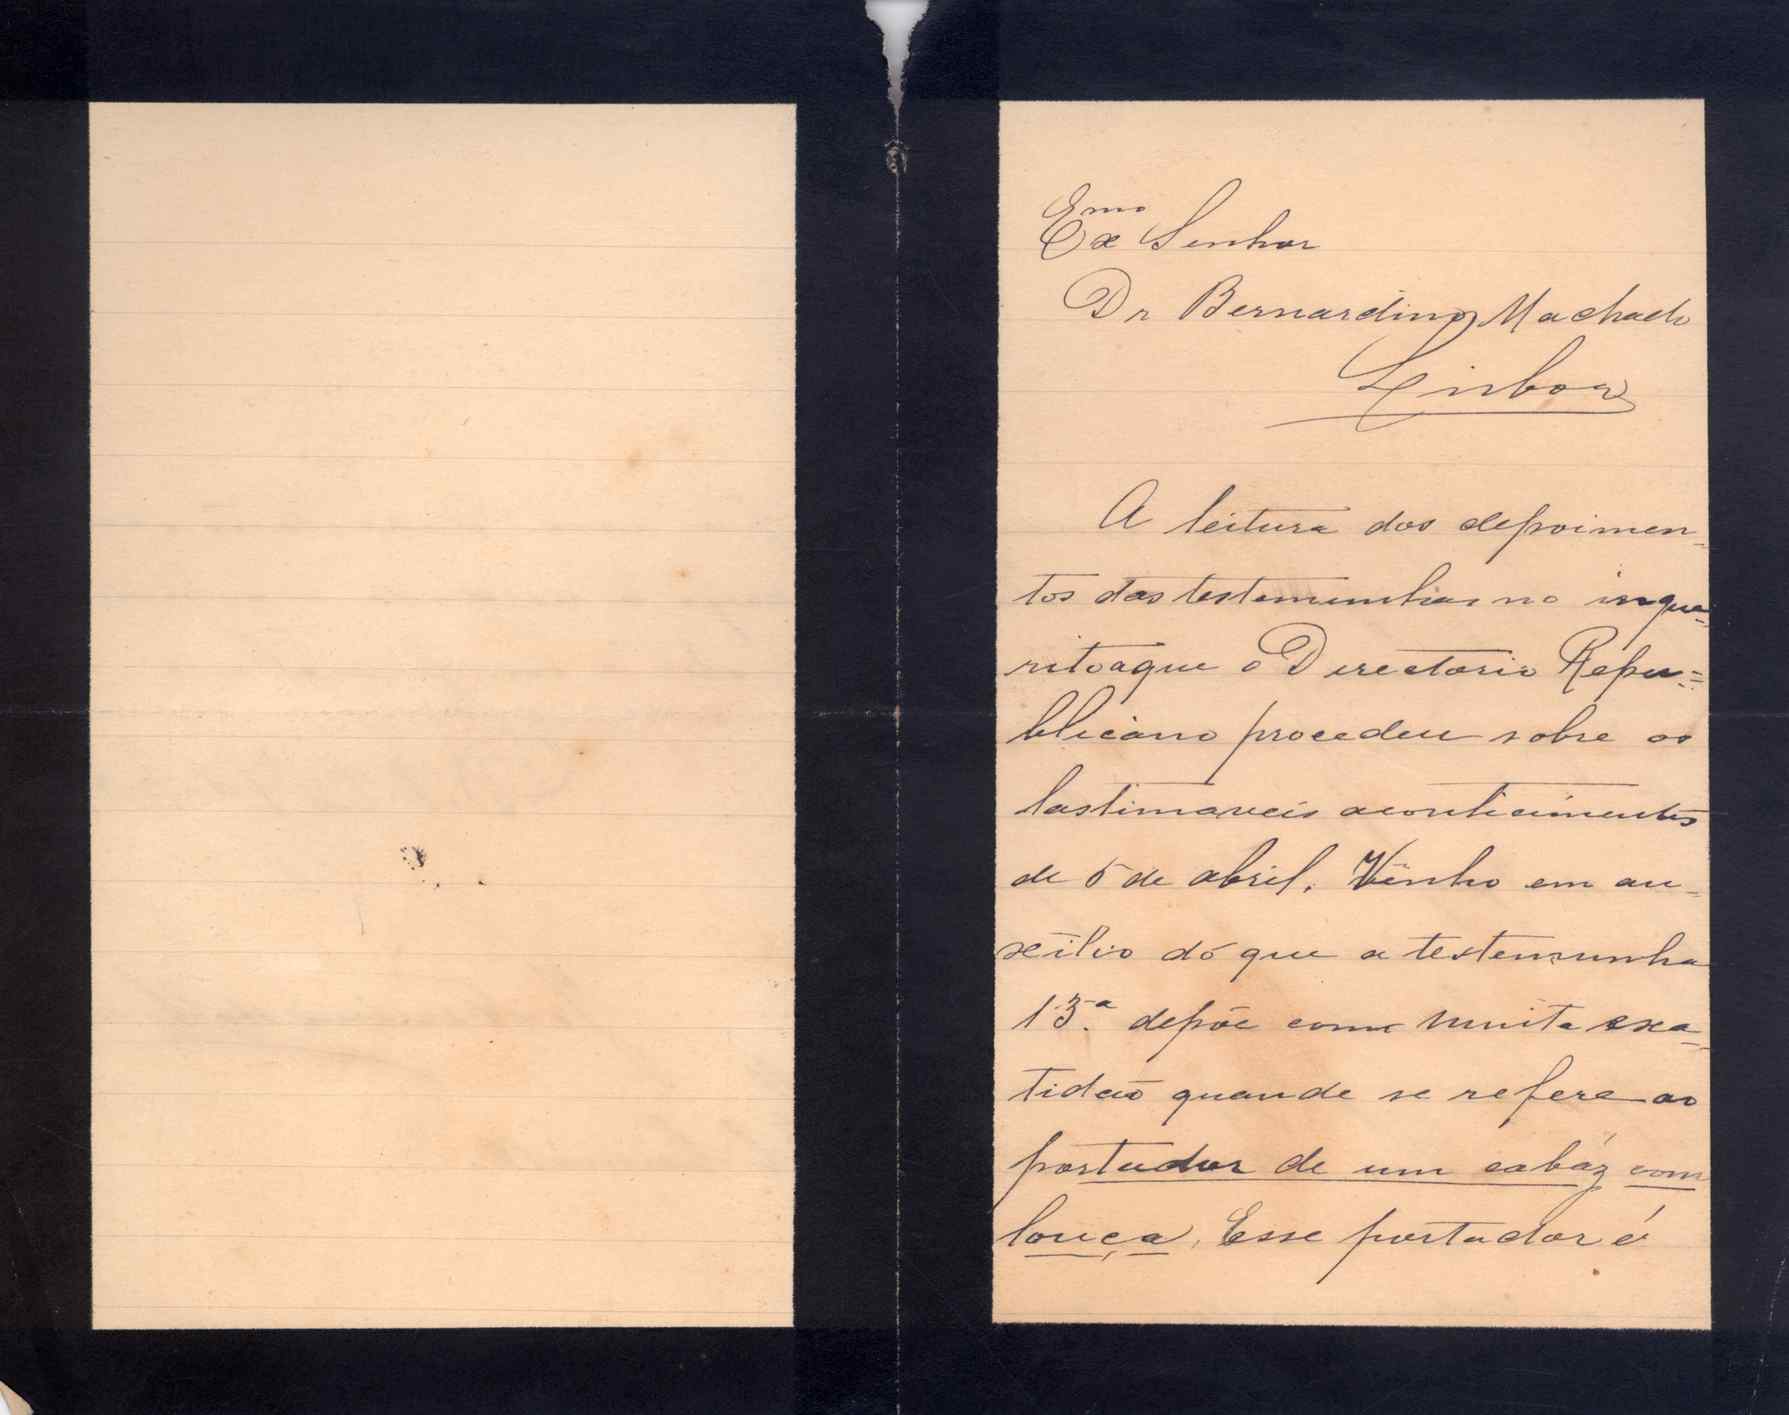 Exmo Senhor
Dr Bernardino Machado
Lisboa
A leitura dos depoimen-
tos das testemunhas no inque=
rito a que o Directorio Repu=
blicano procedeu sobre os
lastimaveis aconticimentos
de 5 de abril. Venho em au-
xilio do que a testemunha
13.ª depõe com muita exa-
tidão quando se refere ao
portador de um cabáz com
louça. Esse portador é